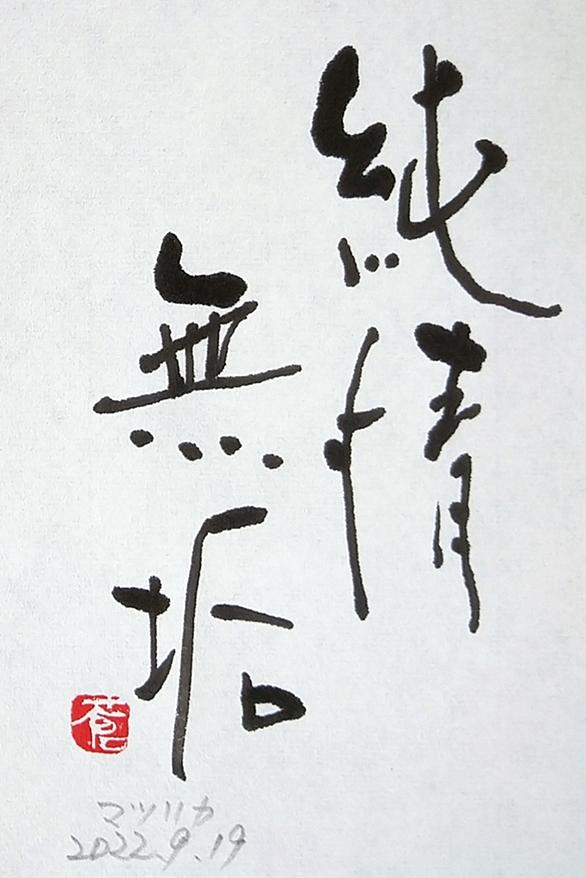 純情
無垢
マツリカ
2022.9.19